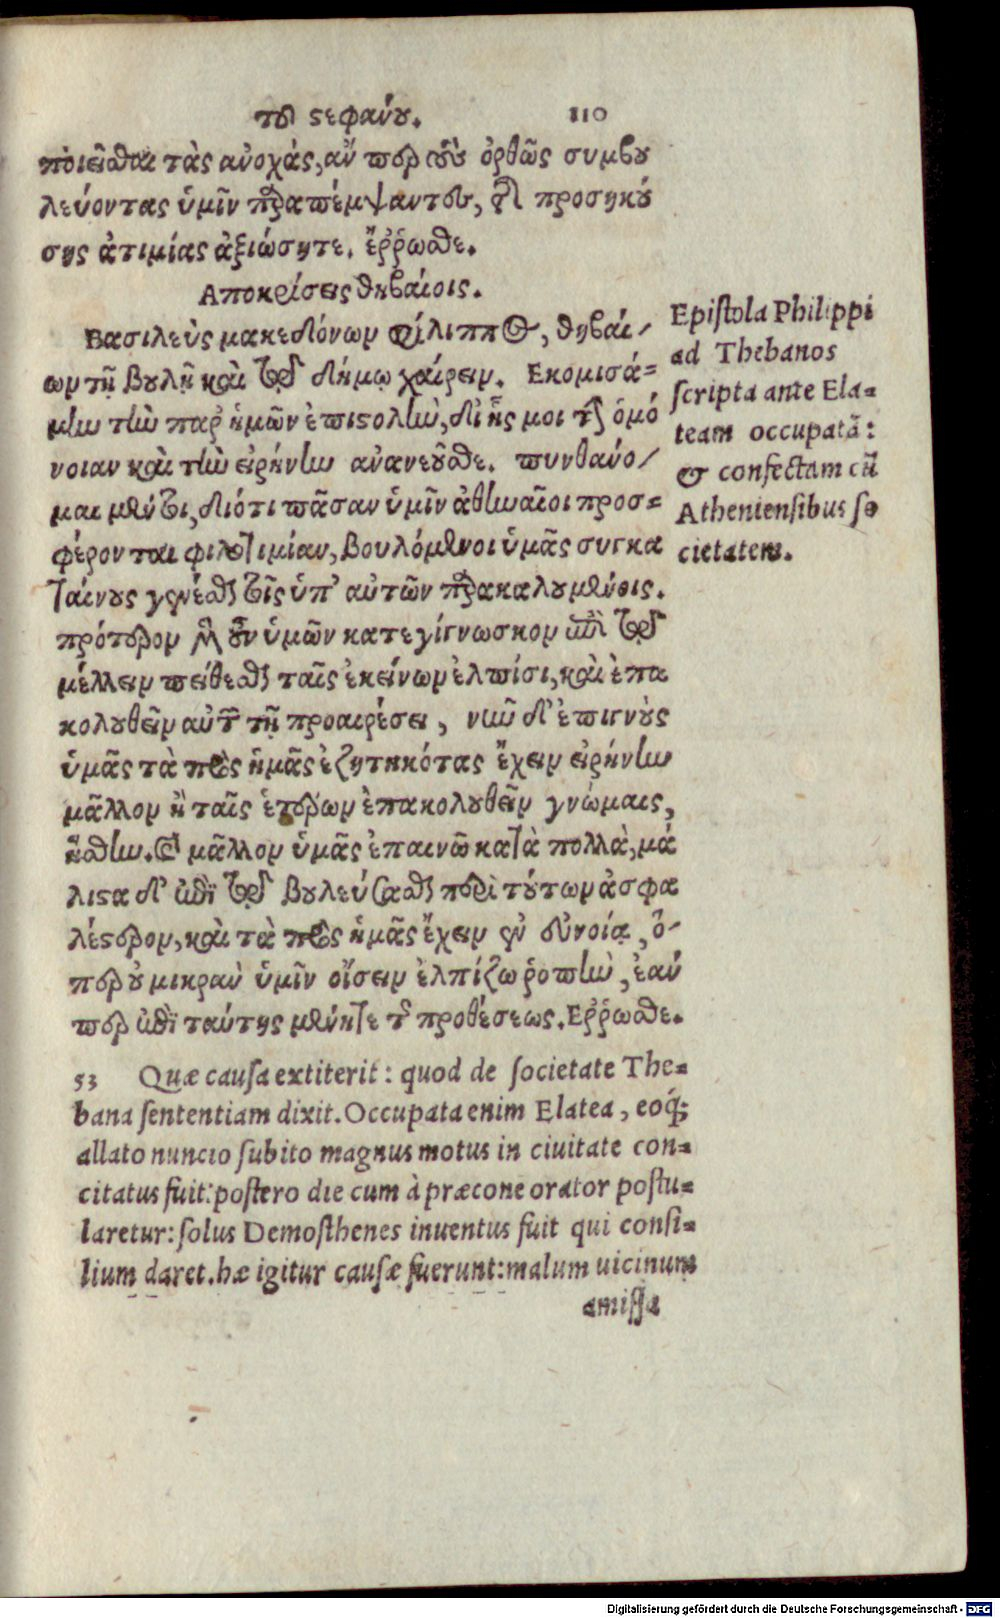 τοῦ στεφάνου. 110
ποιεῖσθαι τὰς ἀνοχάς, ἄν περ τοὺς ὀρθῶς συμβου
λεύοντας ὑμῖν παραπέμψαντες, τῆς προσηκού
σης ἀτιμίας ἀξιώσητε. ἔῤῥωσθε.
Αποκρίσεις θηβαίοις.
Βασιλεὺς μακεδόνων Φίλιππος, θηβαί-
ων τῇ βουλῇ καὶ τῷ δήμῳ χαίρειν. Εκομισά-
μην τὴν παρ' ἡμῶν ἐπιστολὴν, δι' ἧς μοι τὴν ὁμό
νοιαν καὶ τὴν εἰρήνην ἀνανεοῦσθε. πυνθάνο-
μαι μέντοι, διότι πᾶσαν ὑμῖν ἀθηναῖοι προσ-
φέρονται φιλοτιμίαν, βουλόμενοι ὑμᾶς συγκα
ταίνους γενέσθαι τοῖς ὑπ' αὐτῶν παρακαλουμένοις.
πρότερον μὲν οὖν ὑμῶν κατεγίγνωσκον ἐπὶ τῷ
μέλλειν πείθεσθαι ταῖς ἐκείνων ἐλπίσι, καὶ ἐπα
κολουθεῖν αὐτῶν τῇ προαιρέσει, νῦν δ' ἐπιγνοὺς
ὑμᾶς τὰ πρὸς ἡμᾶς ἐζητηκότας ἔχειν εἰρήνην
μᾶλλον ἢ ταῖς ἑτέρων ἐπακολουθεῖν γνώμαις,
ἥσθην. καὶ μᾶλλον ὑμᾶς ἐπαινῶ κατὰ πολλὰ, μά
λιστα δ' ἐπὶ τῷ βουλεύσασθαι περὶ τούτων ἀσφα
λέστερον, καὶ τὰ πρὸς ἡμᾶς ἔχειν ἐν εὐνοίᾳ, ὅ-
περ οὐ μικρὰν ὑμῖν οἴσειν ἐλπίζω ῥοπὴν, ἐάν
περ ἐπὶ ταύτης μένητε τῆς προθέσεως. Ερῥωσθε.
Epistola Philippi
ad Thebanos
scripta ante Ela-
team occupatā:
& confectam cū
Atheniensibus so
cietatem.
53 Quæ causa extiterit: quod de societate The-
bana sententiam dixit. Occupata enim Elatea, eoq́;
allato nuncio subito magnus motus in ciuitate con-
citatus fuit: postero die cum à præcone orator postu-
laretur: solus Demosthenes inuentus fuit qui consi-
lium daret. hæ igitur causæ fuerunt: malum uicinum
amissa
Digitalisierung gefördert durch die Deutsche Forschungsgemeinschaft - DFG